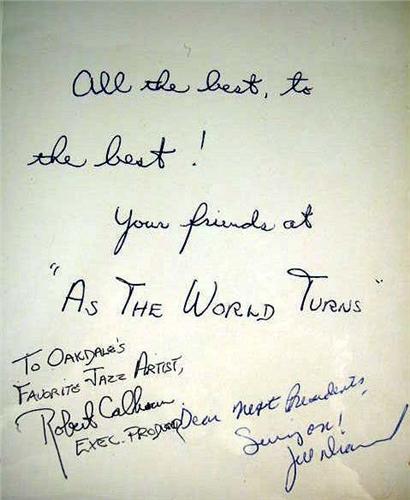 All the best, to
the best!
Your friends at
"AS THE WORLD TURNS"
TO OAKDALE'S
FAVORITE JAZZ ARTIST,
Robert Calhoun
EXEC. PRODUCER
Dear next Presidents,
Swing on!